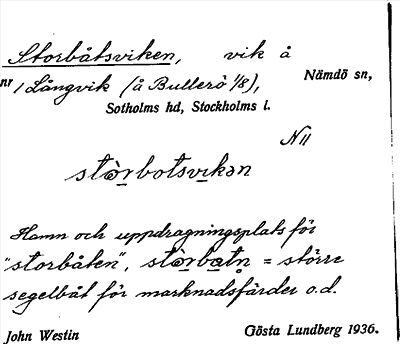 Storbåtsviken, vik å
nr 1 Långvik (å Bullerö 1/8), Nämdö sn,
Sotholms hd, Stockholms l.
N II
stòrbotsvikən
Hamn och uppdragningsplats för
"storbåten", stòrbatn̥ = större
segelbåt för marknadsfärder o.d.
John Westin Gösta Lundberg 1936.